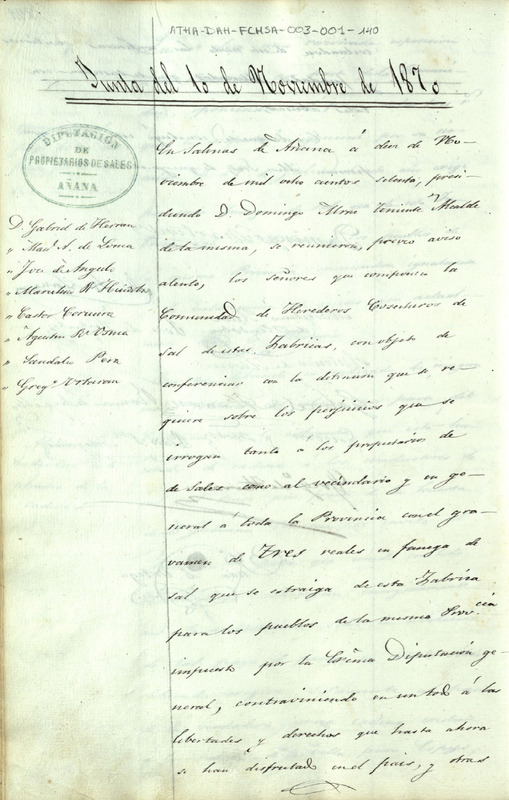 ATHA-DAH-FCHSA-003-001-140
Junta del 10 de Noviembre de 1870
DIPUTACIÓN
DE
PROPIETARIOS DE SALES
AÑANA
D. Gabriel de Herran
" Man.l A. de
" Jose de Angulo
" Marcelino
" Castor Cercuera
" Agustin
" Sandalio Perez
" Greg.o
En Salinas de Añana á diez de No-
viembre de mil ocho cientos setenta, presi-
diendo D. Domingo Teniente Alcalde
de la misma, se reunieron, previo aviso
atento, los señores que componen la
Comunidad de Herederos Cosecheros de
Sal de estas Fabricas, con objeto de
conferenciar con la detencion que se re-
quiere sobre los perjuicios que se
irrogan tanto a los propietarios de
Sales como al vecindario y en ge-
neral á toda la Provincia con el gra-
vamen de Tres reales en fanega de
sal que se estraiga de esta Fabrica
para los pueblos de la misma Provcia
impuesto por la Excma Diputación ge-
neral, contraviniendo en un todo á las
libertades y derechos que hasta ahora
se han disfrutado en el pais, y otras